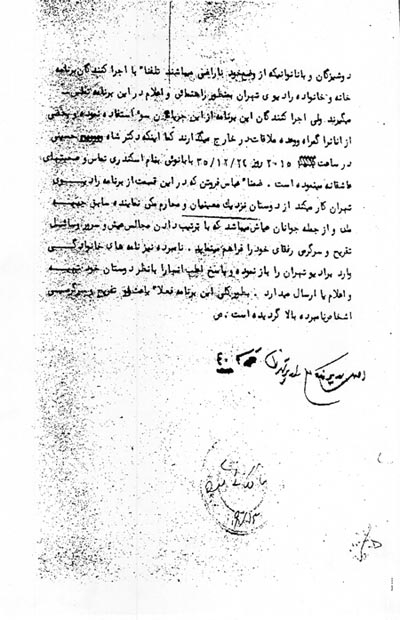 دوشیزگان و بانوانیکه از وضع خود ناراضی میباشند تلفنا" با اجرا کنندگان برنامه
خانه و خانواده رادیوی تهران بمنظور راهنمائی و اعلام در این برنامه تماس
میگیرند ولی اجرا کنندگان این برنامه از این جریان سو استفاده نموده و بعضی
از آنانرا گمراه و وعده ملاقات در خارج میگذارند کما اینکه دکتر شاه حسینی
در ساعت ۲۰۱۵ روز ۳۵/۱۲/۲۴ با بانوئی بنام اسکندری تماس و صحبتهای
عاشقانه مینموده است . ضمنا" عباس فروتن که در این قسمت از برنامه رادیو
تهران کار میکند از دوستان نزدیک معینیان و محارم مکی نماینده سابق جبهه
ملی و از جمله جوانان عیاش میباشد که با ترتیب دادن مجالس عیش و سرور وسائل
تفریح و سرگرمی رفقای خود را فراهم مینماید . نامبرده نیز نامه های خانوادگی
وارد برادیو تهران را باز نموده و پاسخ اغلب آنها را با نظر دوستان خود تهیه
و اعلام یا ارسال میدارد . بطور کلی این برنامه فعلا" باعث تفریح و سرگرمی
اشخاص نامبرده بالا گردیده است . ص